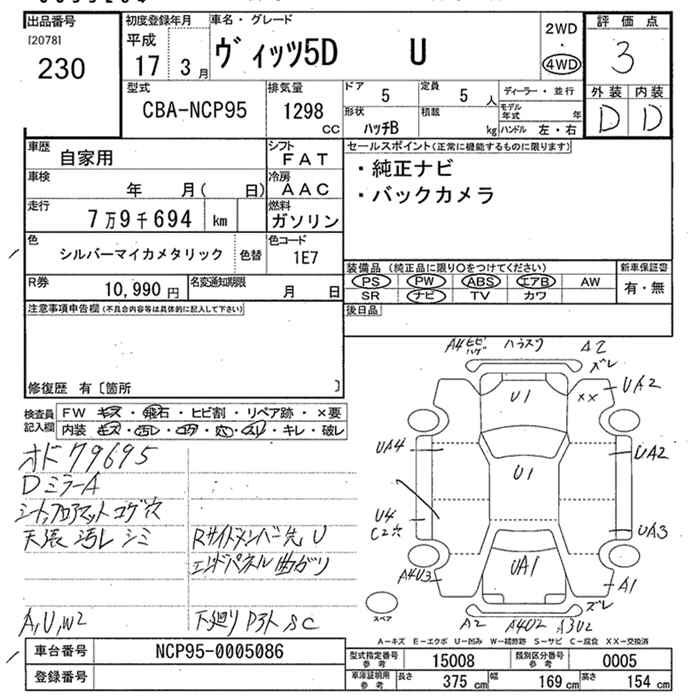 出品番号
[2078]
230
初度登録年月
平成
17 3月
車名・グレード
ヴィッツ5D U
2WD
・
4WD
評価点
3
外装 内装
D D
型式
CBA-NCP95
排気量
1298
CC
ドア
5
定員
5 人
形状
ハッチB
積載
kg
ディーラー・並行
モデル年式 年
ハンドル 左・右
車歴
自家用
シフト
FAT
車検
年 月( 日)
冷房
AAC
走行
7万9千694 km
燃料
ガソリン
色
シルバーマイカメタリック
色替
色コード
1E7
R券
10,990 円
名変通知期限
月 日
セールスポイント(正常に機能するものに限ります)
・純正ナビ
・バックカメラ
装備品 (純正品に限り○をつけてください)
PS PW ABS エアB AW
SR ナビ TV カワ
新車保証書
有・無
後日品
注意事項申告欄(不良合内容等は具体的に記入して下さい)
修復歴 有〔箇所 〕
検査員記入欄
FW キズ・飛石・ヒビ割・リペア跡・×要
内装 キズ・汚レ・コゲ・穴・スリ・キレ・破レ
オド 79695
DミラーA
シート、フロアマット コゲ穴
天張 汚レ シミ
Rサイドメンバー先 U
エンドパネル曲がり
A,U,W2
下廻り
SC
A4 ヒビ ハゲ
A2
ズレ
UA2
××
U1
UA4
UA2
U1
U4
C2穴
UA3
UA1
A4U3
A1
ズレ
A2 A4U2 A3U2
スペア
A-キズ E-エクボ U-凹み W-補修跡 S-サビ C-腐食 XX-交換済
車台番号
NCP95-0005086
登録番号
型式指定番号 参考
15008
類別区分番号 参考
0005
車庫証明用 参考
長さ 375 cm
幅 169 cm
高さ 154 cm